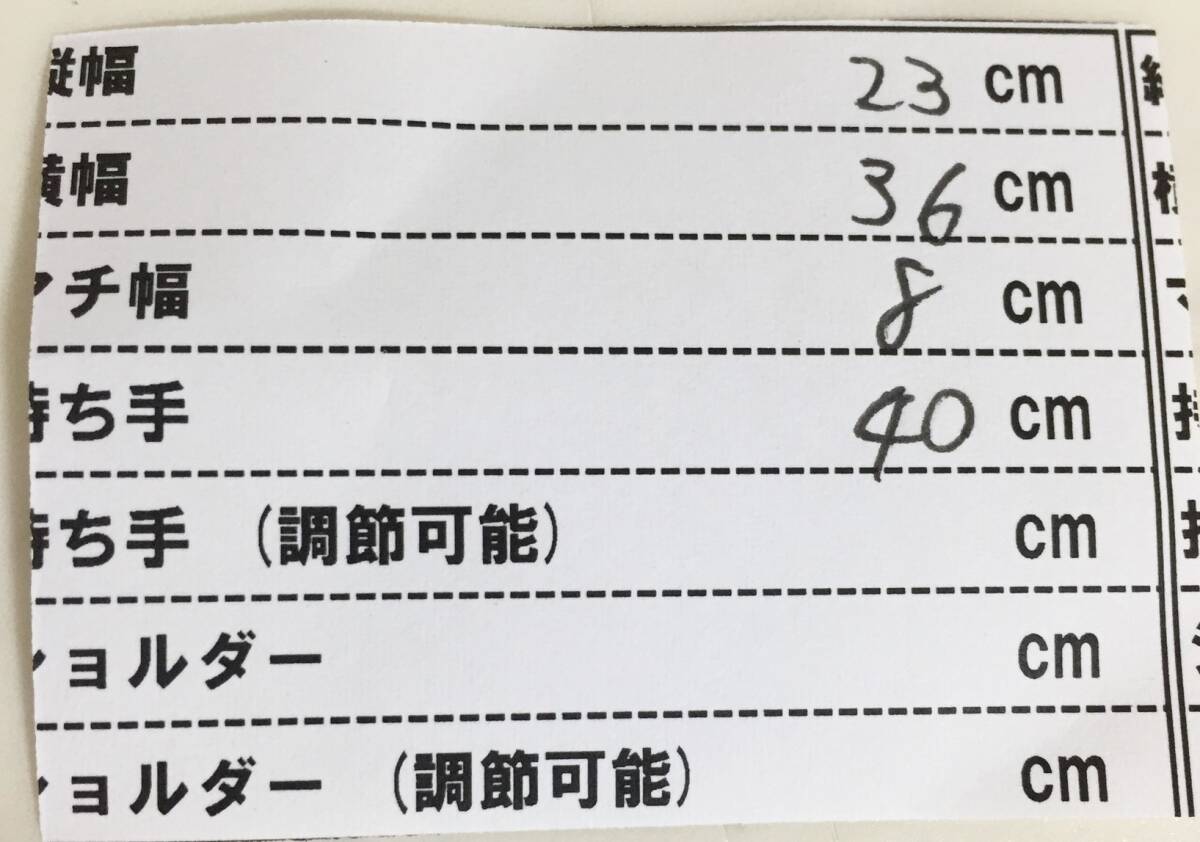 縦幅 23 cm
横幅 36 cm
マチ幅 8 cm
持ち手 40 cm
持ち手 (調節可能) cm
ショルダー cm
ショルダー (調節可能) cm